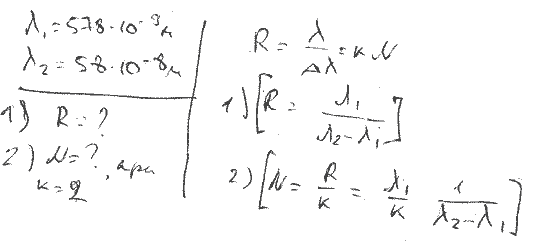 λ₁ = 578·10⁻⁹м
λ₂ = 58·10⁻⁸м
1) R = ?
2) N = ?, при
k = 2
R = λ/Δλ = kN
1) [R = λ₁/(λ₂-λ₁)]
2) [N = R/k = λ₁/k 1/(λ₂-λ₁)]